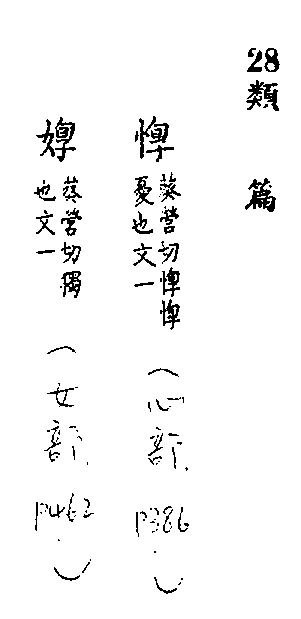 28類 篇
惸
葵營切惸惸
憂也文一
(心部.
p386.)
葵營切獨
也文一
(女部.
p462.)